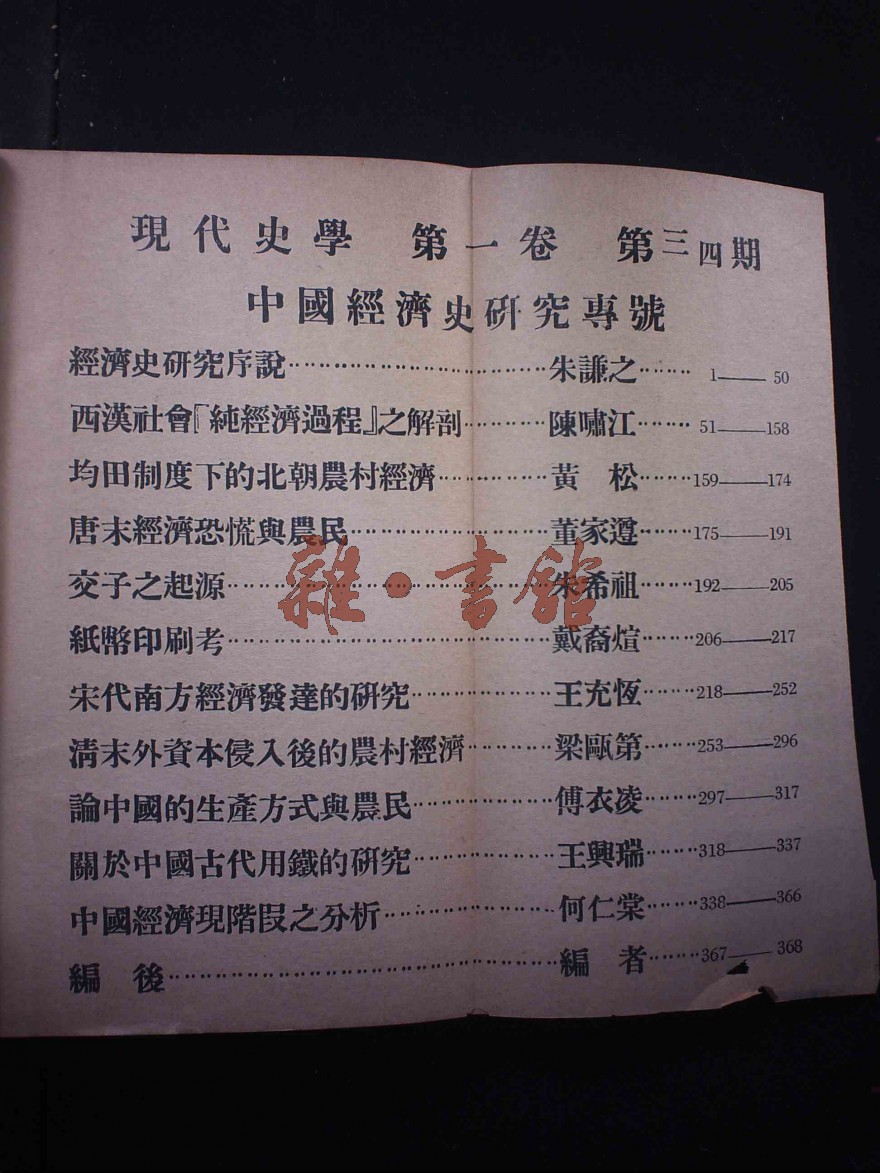 現代史學 第一卷 第三四期
中國經濟史研究專號
經濟史研究序說……………………………朱謙之…… 1——50
西漢社會『純經濟過程』之解剖…………陳嘯江…… 51——158
均田制度下的北朝農村經濟……………黃 松……159——174
唐末經濟恐慌與農民……………………董家遵……175——191
交子之起源………………………………朱希祖……192——205
紙幣印刷考………………………………戴裔煊……206——217
宋代南方經濟發達的研究………………王充恆……218——252
清末外資本侵入後的農村經濟…………梁甌第……253——296
論中國的生產方式與農民………………傅衣凌……297——317
關於中國古代用鐵的研究………………王興瑞……318——337
中國經濟現階段之分析…………………何仁棠……338——366
編 後……………………………………編 者……367——368
雜·書館